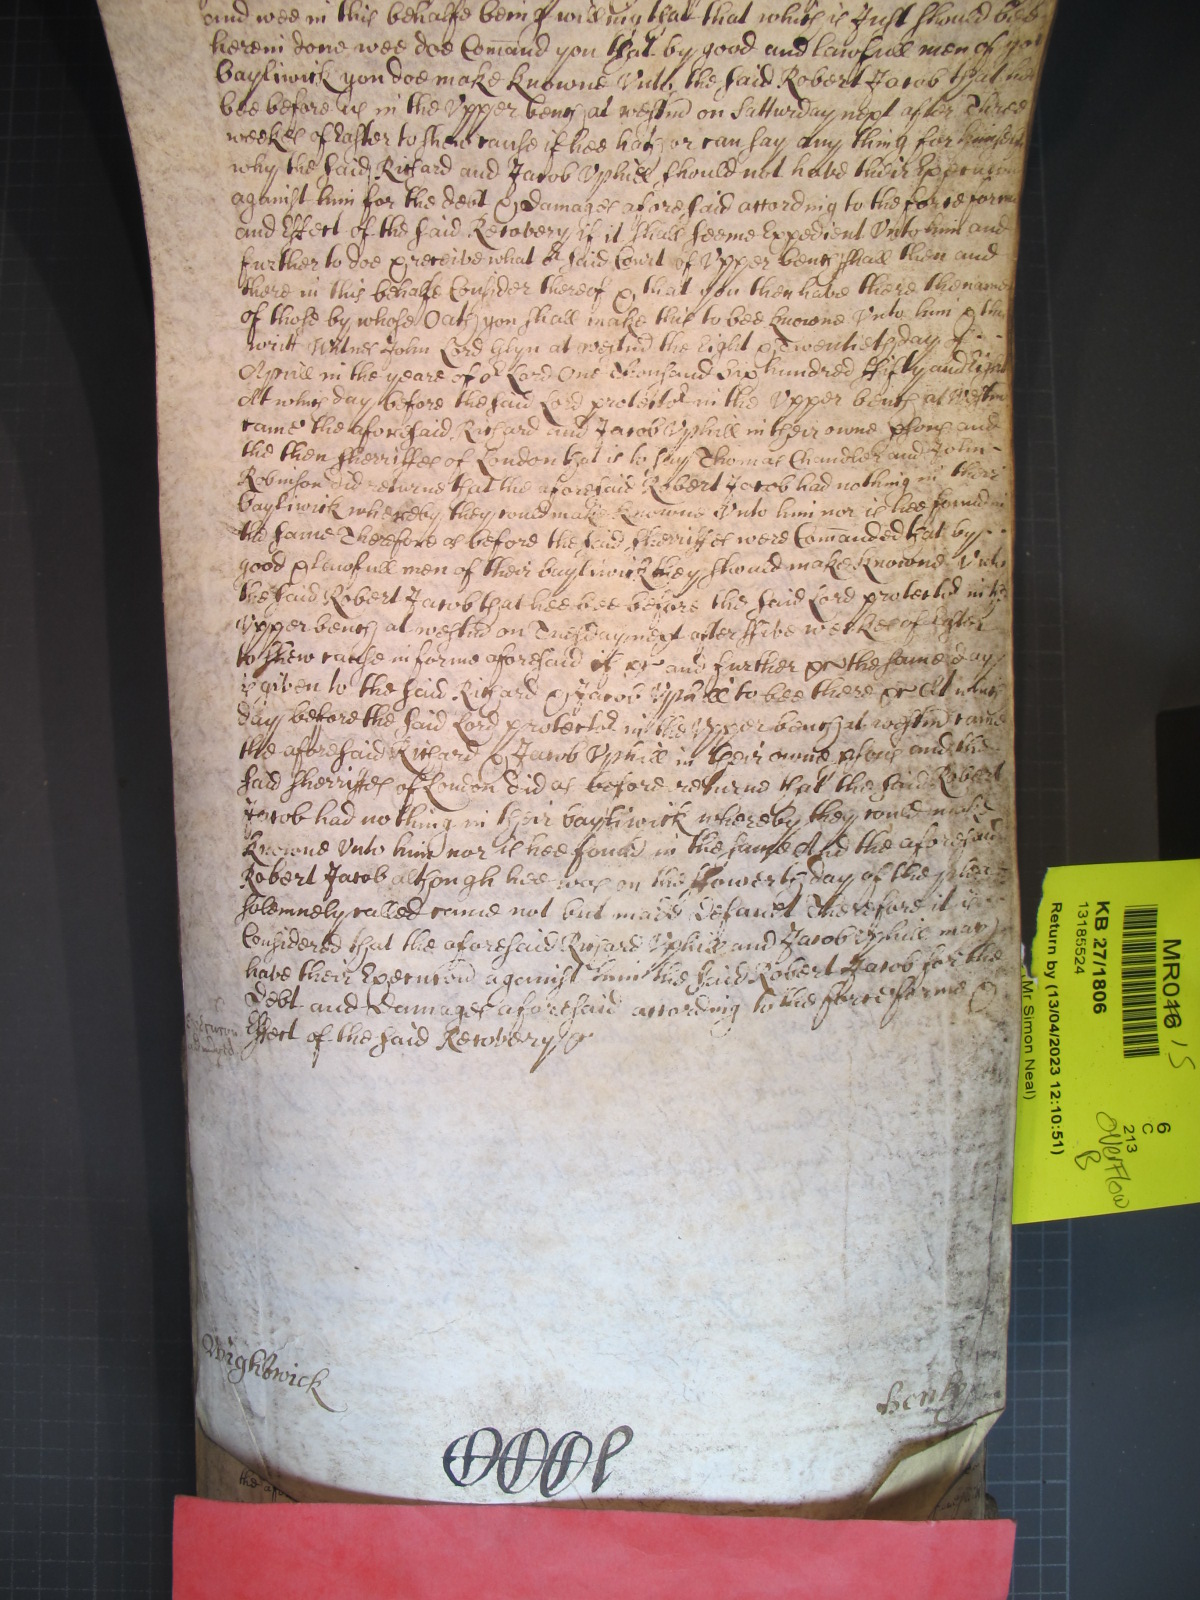 and wee in this behalfe being willing that that which is Just should bee
herein done wee doe Comand you that by good and lawfull men of yor
bayliwick you doe make knowne Unto the said Robert Jacob that hee
bee before us in the Upper bench at westmr on Satturday next after Three
weekes of Easter to shew cause if hee hath or can say any thing for himself
why the said Richard and Jacob Uphill should not have their Execucon
against him for the debt & damages aforesaid according to the force forme
and Effect of the said Recovery if it shall seeme Expedient Unto him and
further to doe & receive what or said Court of Upper bench shall then and
there in this behalfe Consider thereof & that you then have there the names
of those by whose Oath you shall make this to bee knowne Unto him & this
writt Witnes John Lord Glyn at westmr the Eight & Twentieth day of
Aprill in the yeare of or Lord One Thousand Six hundred ffifty and Eight
At which day before the said Lord protector in the Upper bench at Westmr
came the aforesaid Richard and Jacob Uphill in their owne psons and
the then Sherriffes of London that is to say Thomas Chandler and John
Robinson did returne that the aforesaid Robert Jacob had nothing in their
bayliwick whereby they could make knowne Unto him nor is hee found in
the same Therefore as before the said Sherriffes were Comanded that by
good & lawfull men of their bayliwick they should make knowne Unto
the said Robert Jacob that hee bee before the said Lord protector in the
Upper bench at westmr on Tuesday next after ffive weekes of Easter
to shew cause in forme aforesaid if &c and further &c the same day
is given to the said Richard & Jacob Uphill to bee there &c At which
day before the said Lord protector in the Upper bench at westmr came
the aforesaid Richard & Jacob Uphill in their owne psons and the
said Sherriffes of London did as before returne that the said Robert
Jacob had nothing in their bayliwick whereby they could make
knowne Unto him nor is hee found in the same And the aforesaid
Robert Jacob although hee was on the ffowerth day of the plea
solemnely called came not but made default Therefore it is
Considered that the aforesaid Richard Uphill and Jacob Uphill may
have their Execucon against him the said Robert Jacob for the
debt and Damages aforesaid according to the force forme &
Effect of the said Recovery &c
Wightwick
Henley
the afo
MR046 15
KB 27/1806
13185524
Return by (13/04/2023 12:10:51)
(Mr Simon Neal)
6
C
213
Overflow
B